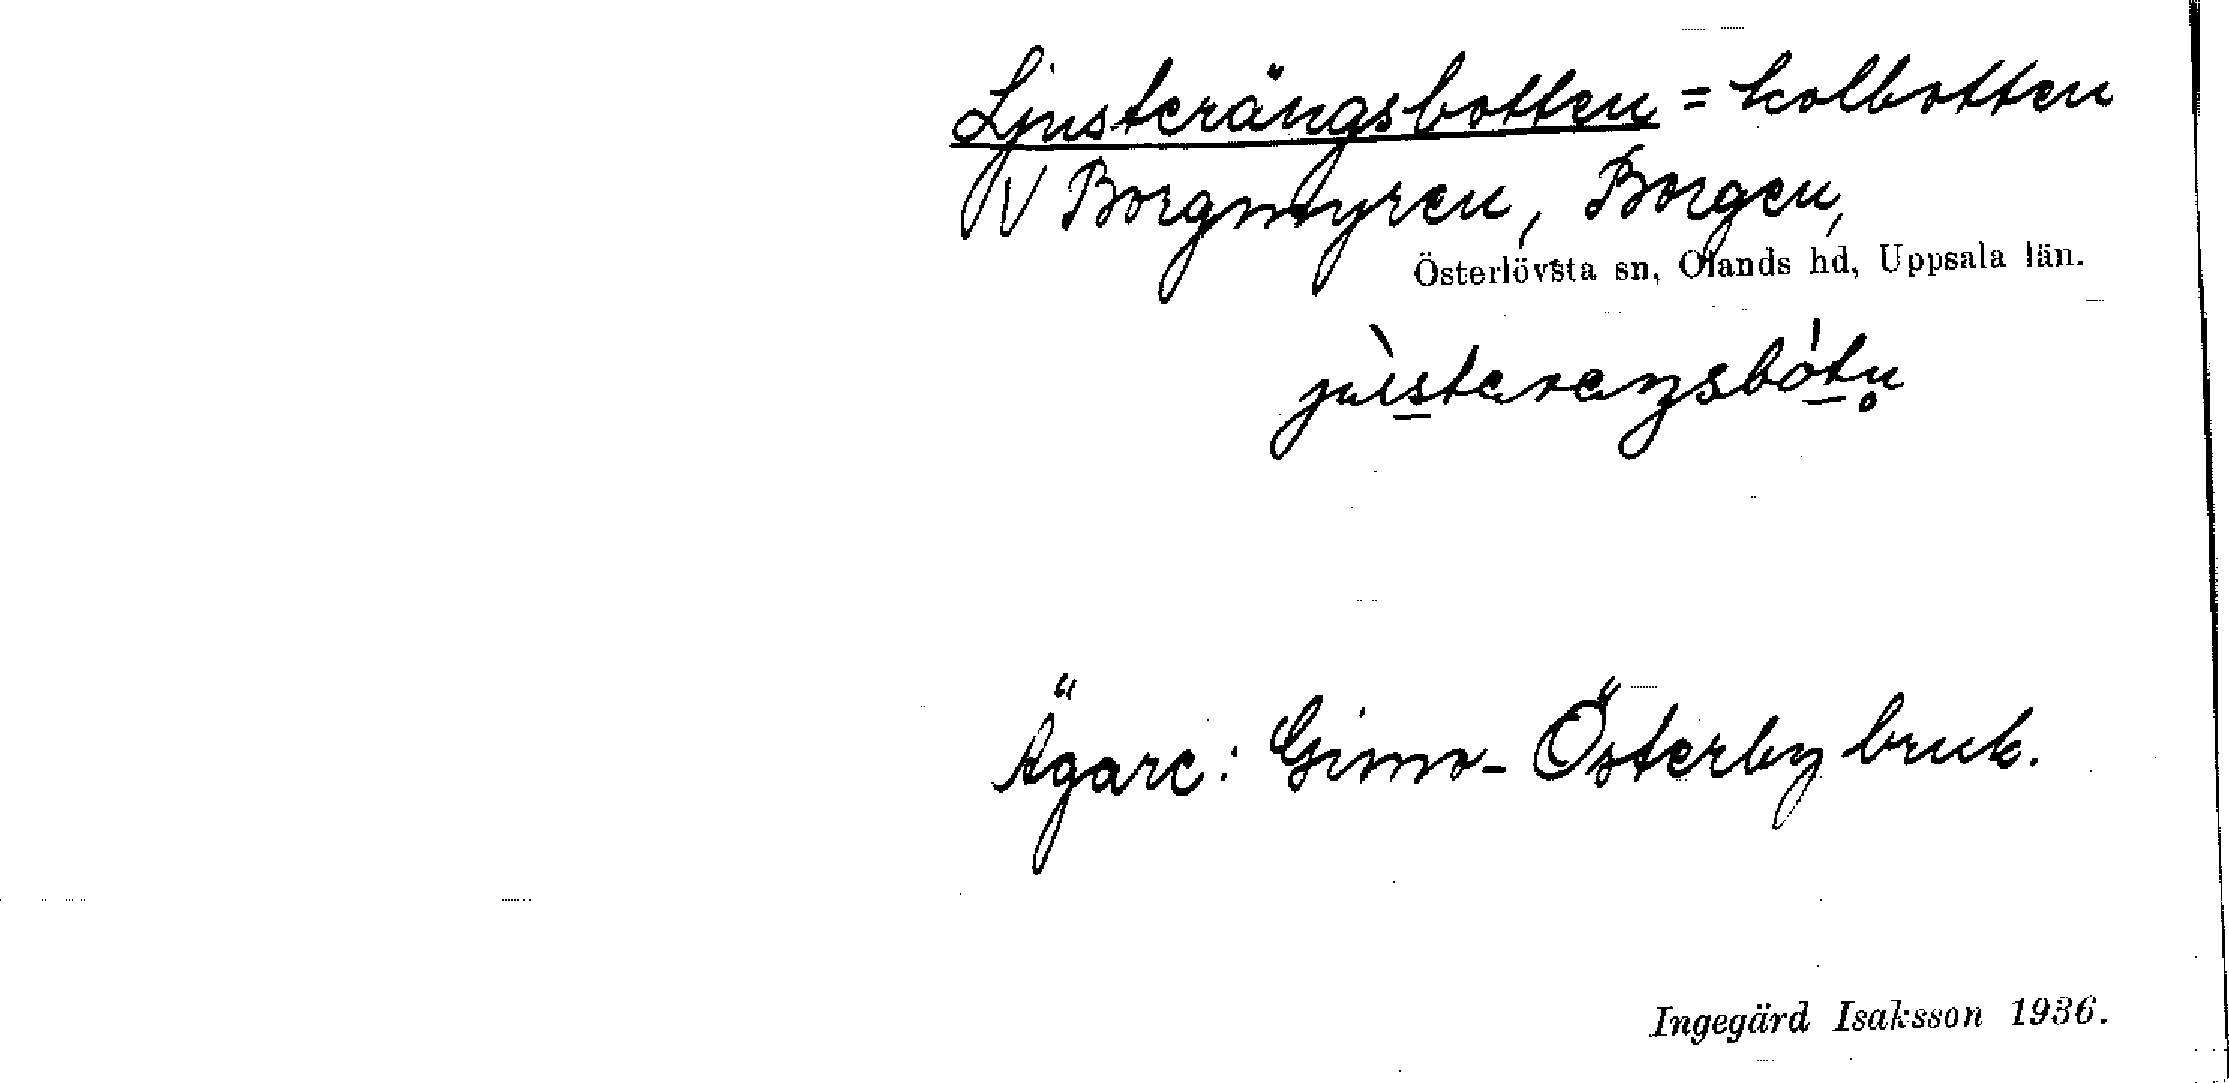 Ljusterängsbotten = kolbotten
V Borgmyren, Borgen,
Österlövsta sn, Olands hd, Uppsala län.
Ägare: Gimo-Österby bruk.
Ingegärd Isaksson 1936.